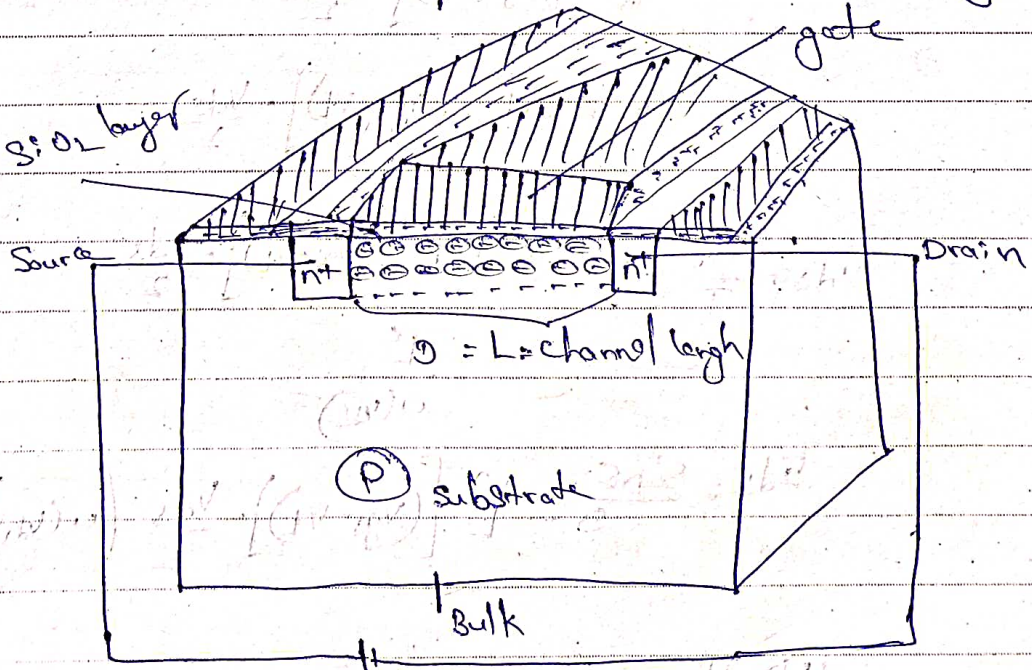 gate
SiO2 layer
Source
n+
n+
Drain
= L = channel lengh
P
substrate
Bulk